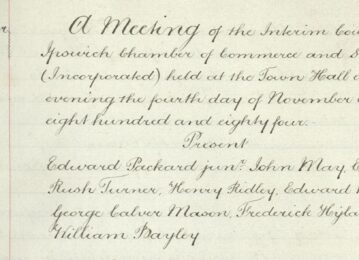 A Meeting of the Interim
Ipswich Chamber of Commerce and
(Incorporated) held at the Town Hall
evening the fourth day of November
eight hundred and eighty four.
Present
Edward Packard junr. John May,
Rush Turner, Henry Ridley, Edward
George Calver Mason, Frederick
William Bayley